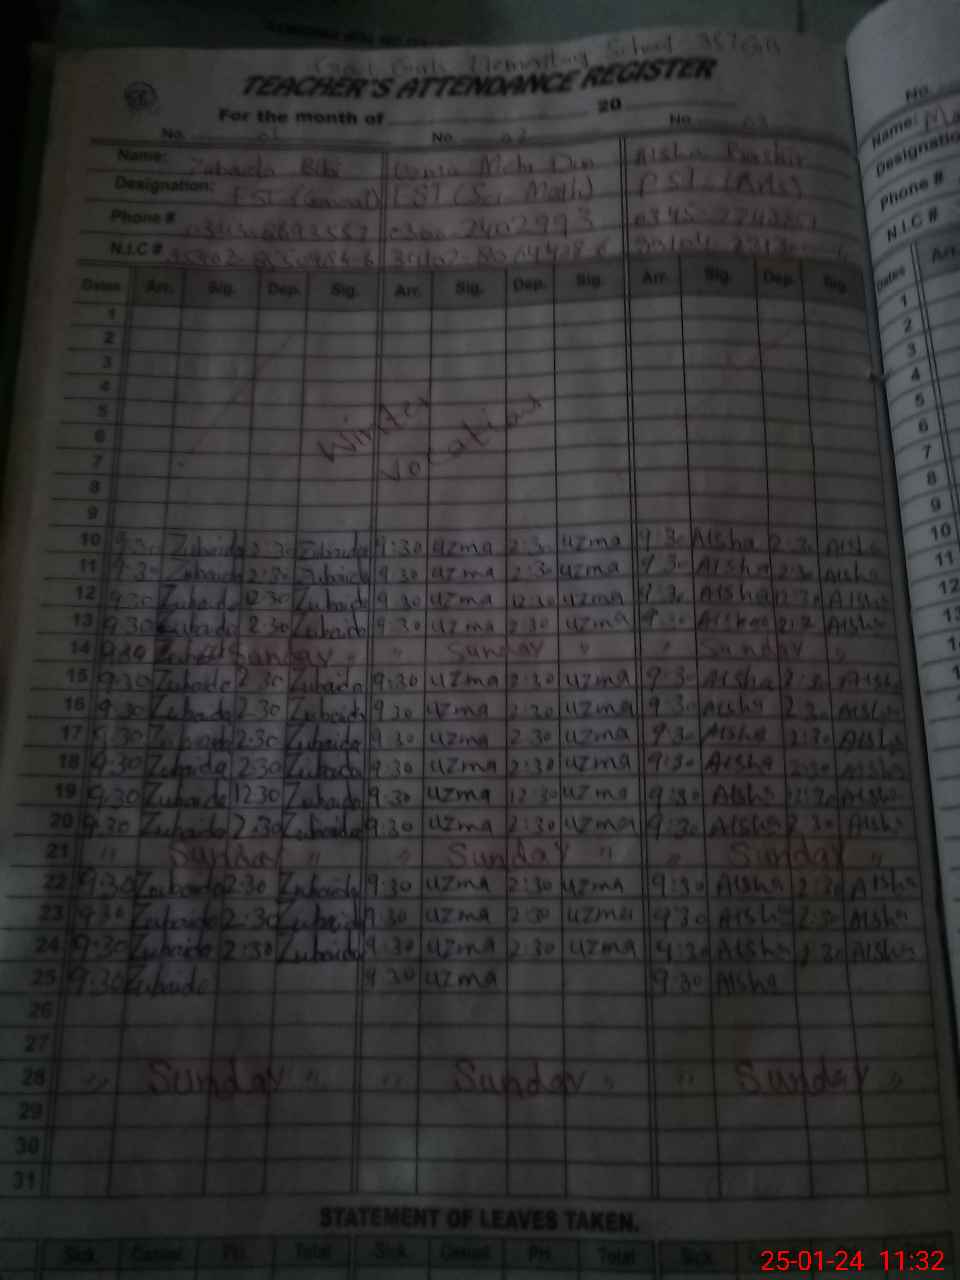 Girls Elementary School
TEACHER'S ATTENDANCE REGISTER
For the month of 20
No. 01 No. 02 No. 03
Name: Zubaida Bibi Uzma Mohi Din Aisha Bashir
Designation: EST (General) EST (Sci Math) PST (Arts)
Phone # 0300 2402993
N.I.C #
Dates Arr. Sig. Dep. Sig. Arr. Sig. Dep. Sig. Arr. Sig. Dep. Sig.
1
2
3
4
5
6
7
8
9
Winter
vacations
10 9:30 Zubaida 2:30 Zubaida 9:30 uzma 2:30 uzma 9:30 AIsha 2:30 AIsha
11 9:30 Zubaida 2:30 Zubaida 9:30 uzma 2:30 uzma 9:30 AIsha 2:30 AIsha
12 9:30 Zubaida 12:30 Zubaida 9:30 uzma 12:30 uzma 9:30 AIsha 12:30 AIsha
13 9:30 Zubaida 2:30 Zubaida 9:30 uzma 2:30 uzma 9:30 AIsha 2:30 AIsha
14 Sunday " " Sunday " " Sunday "
15 9:30 Zubaida 2:30 Zubaida 9:30 uzma 2:30 uzma 9:30 AIsha 2:30 AIsha
16 9:30 Zubaida 2:30 Zubaida 9:30 uzma 2:30 uzma 9:30 AIsha 2:30 AIsha
17 9:30 Zubaida 2:30 Zubaida 9:30 uzma 2:30 uzma 9:30 AIsha 2:30 AIsha
18 9:30 Zubaida 2:30 Zubaida 9:30 uzma 2:30 uzma 9:30 AIsha 2:30 AIsha
19 9:30 Zubaida 12:30 Zubaida 9:30 uzma 12:30 uzma 9:30 AIsha 12:30 AIsha
20 9:30 Zubaida 2:30 Zubaida 9:30 uzma 2:30 uzma 9:30 AIsha 2:30 AIsha
21 " Sunday " " Sunday " " Sunday "
22 9:30 Zubaida 2:30 Zubaida 9:30 uzma 2:30 uzma 9:30 AIsha 2:30 AIsha
23 9:30 Zubaida 2:30 Zubaida 9:30 uzma 2:30 uzma 9:30 AIsha 2:30 AIsha
24 9:30 Zubaida 2:30 Zubaida 9:30 uzma 2:30 uzma 9:30 AIsha 2:30 AIsha
25 9:30 Zubaida 9:30 uzma 9:30 AIsha
26
27
28 " Sunday " " Sunday " " Sunday "
29
30
31
STATEMENT OF LEAVES TAKEN.
Sick. Casual Pri. Total Sick. Casual Pri. Total Sick.
No.
Name:
Designation
Phone #
N.I.C #
Dates Arr.
1
2
3
4
5
6
7
8
9
10
11
12
25-01-24 11:32